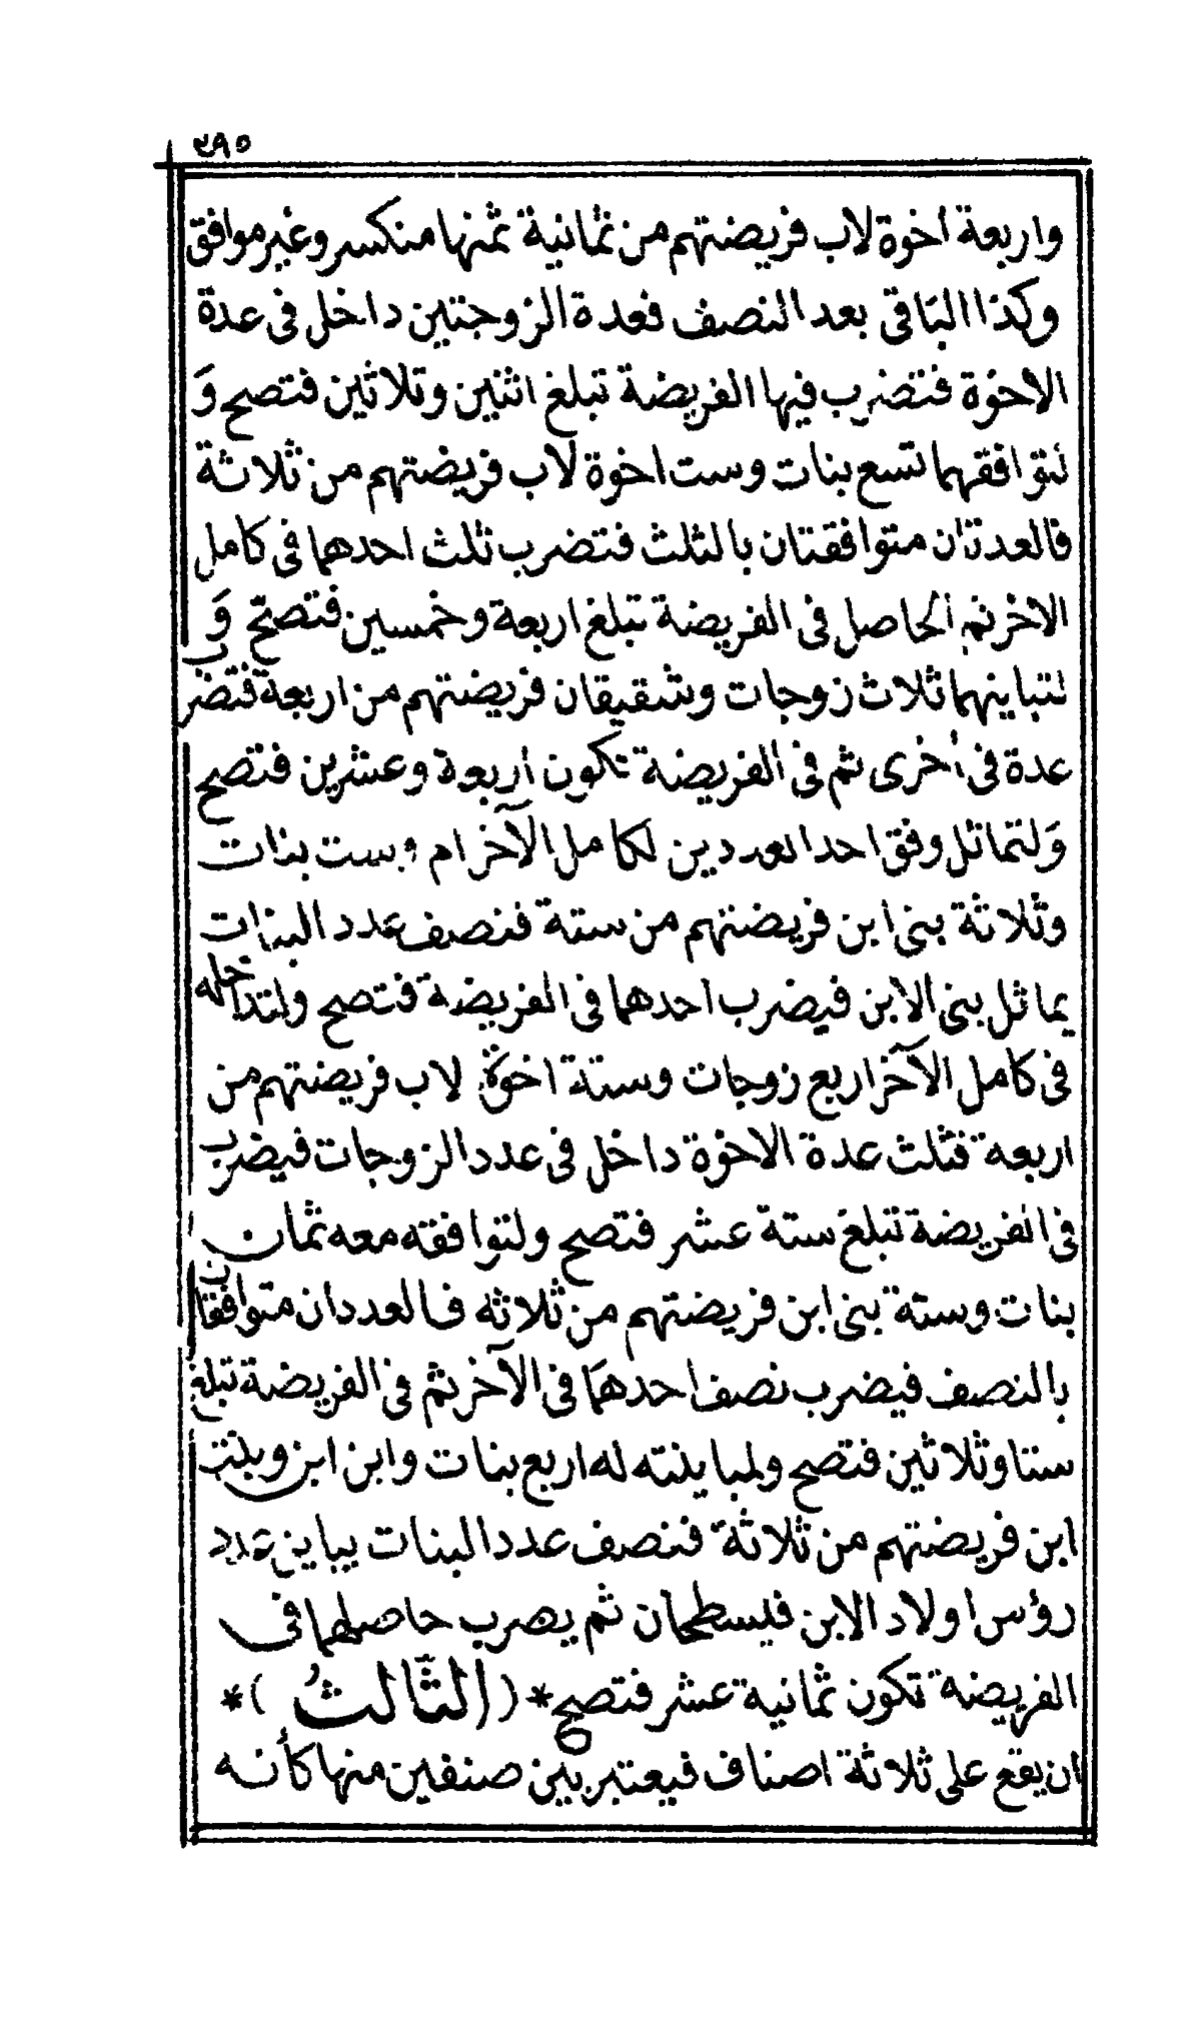 ٢٩٥
واربعة اخوة لاب فريضتهم من ثمانية ثمنها منكسر وغير موافق
وكذا الباقى بعد النصف فعدة الزوجتين داخل فى عدة
الاخوة فتضرب فيها الفريضة تبلغ اثنين وثلاثين فتصح وَ
لتوافقهما تسع بنات وست اخوة لاب فريضتهم من ثلاثة
فالعدتان متوافقتان بالثلث فتضرب ثلث احدهما فى كامل
الاخر ثم الحاصل فى الفريضة تبلغ اربعة وخمسين فتصحّ وَ
لتباينهما ثلاث زوجات وشقيقان فريضتهم من اربعة فتضرب
عدة فى أخرى ثم فى الفريضة تكون اربعة وعشرين فتصح
وَلتماثل وفق احد العددين لكامل الآخر ام وست بنات
وثلاثة بنى ابن فريضتهم من ستة فنصف عدد البنات
يماثل بنى الابن فيضرب احدهما فى الفريضة فتصح ولتداخله
فى كامل الآخر اربع زوجات وستة اخوة لاب فريضتهم من
اربعة فثلث عدة الاخوة داخل فى عدد الزوجات فيضرب
فى الفريضة تبلغ ستة عشر فتصح ولتوافقه معه ثمان
بنات وستة بنى ابن فريضتهم من ثلاثه فالعددان متوافقان
بالنصف فيضرب نصف احدهمَا فى الآخر ثم فى الفريضة تبلغ
ستا وثلاثين فتصح ولمباينته له اربع بنات وابن ابن وبنت
ابن فريضتهم من ثلاثة فنصف عدد البنات يباين عدد
رؤس اولاد الابن فليسطحان ثم يضرب حاصلهما فى
الفريضة تكون ثمانية عشر فتصح * ( الثَّالثُ ) *
ان يقع على ثلاثة اصناف فيعتبر بين صنفين منها كأنه